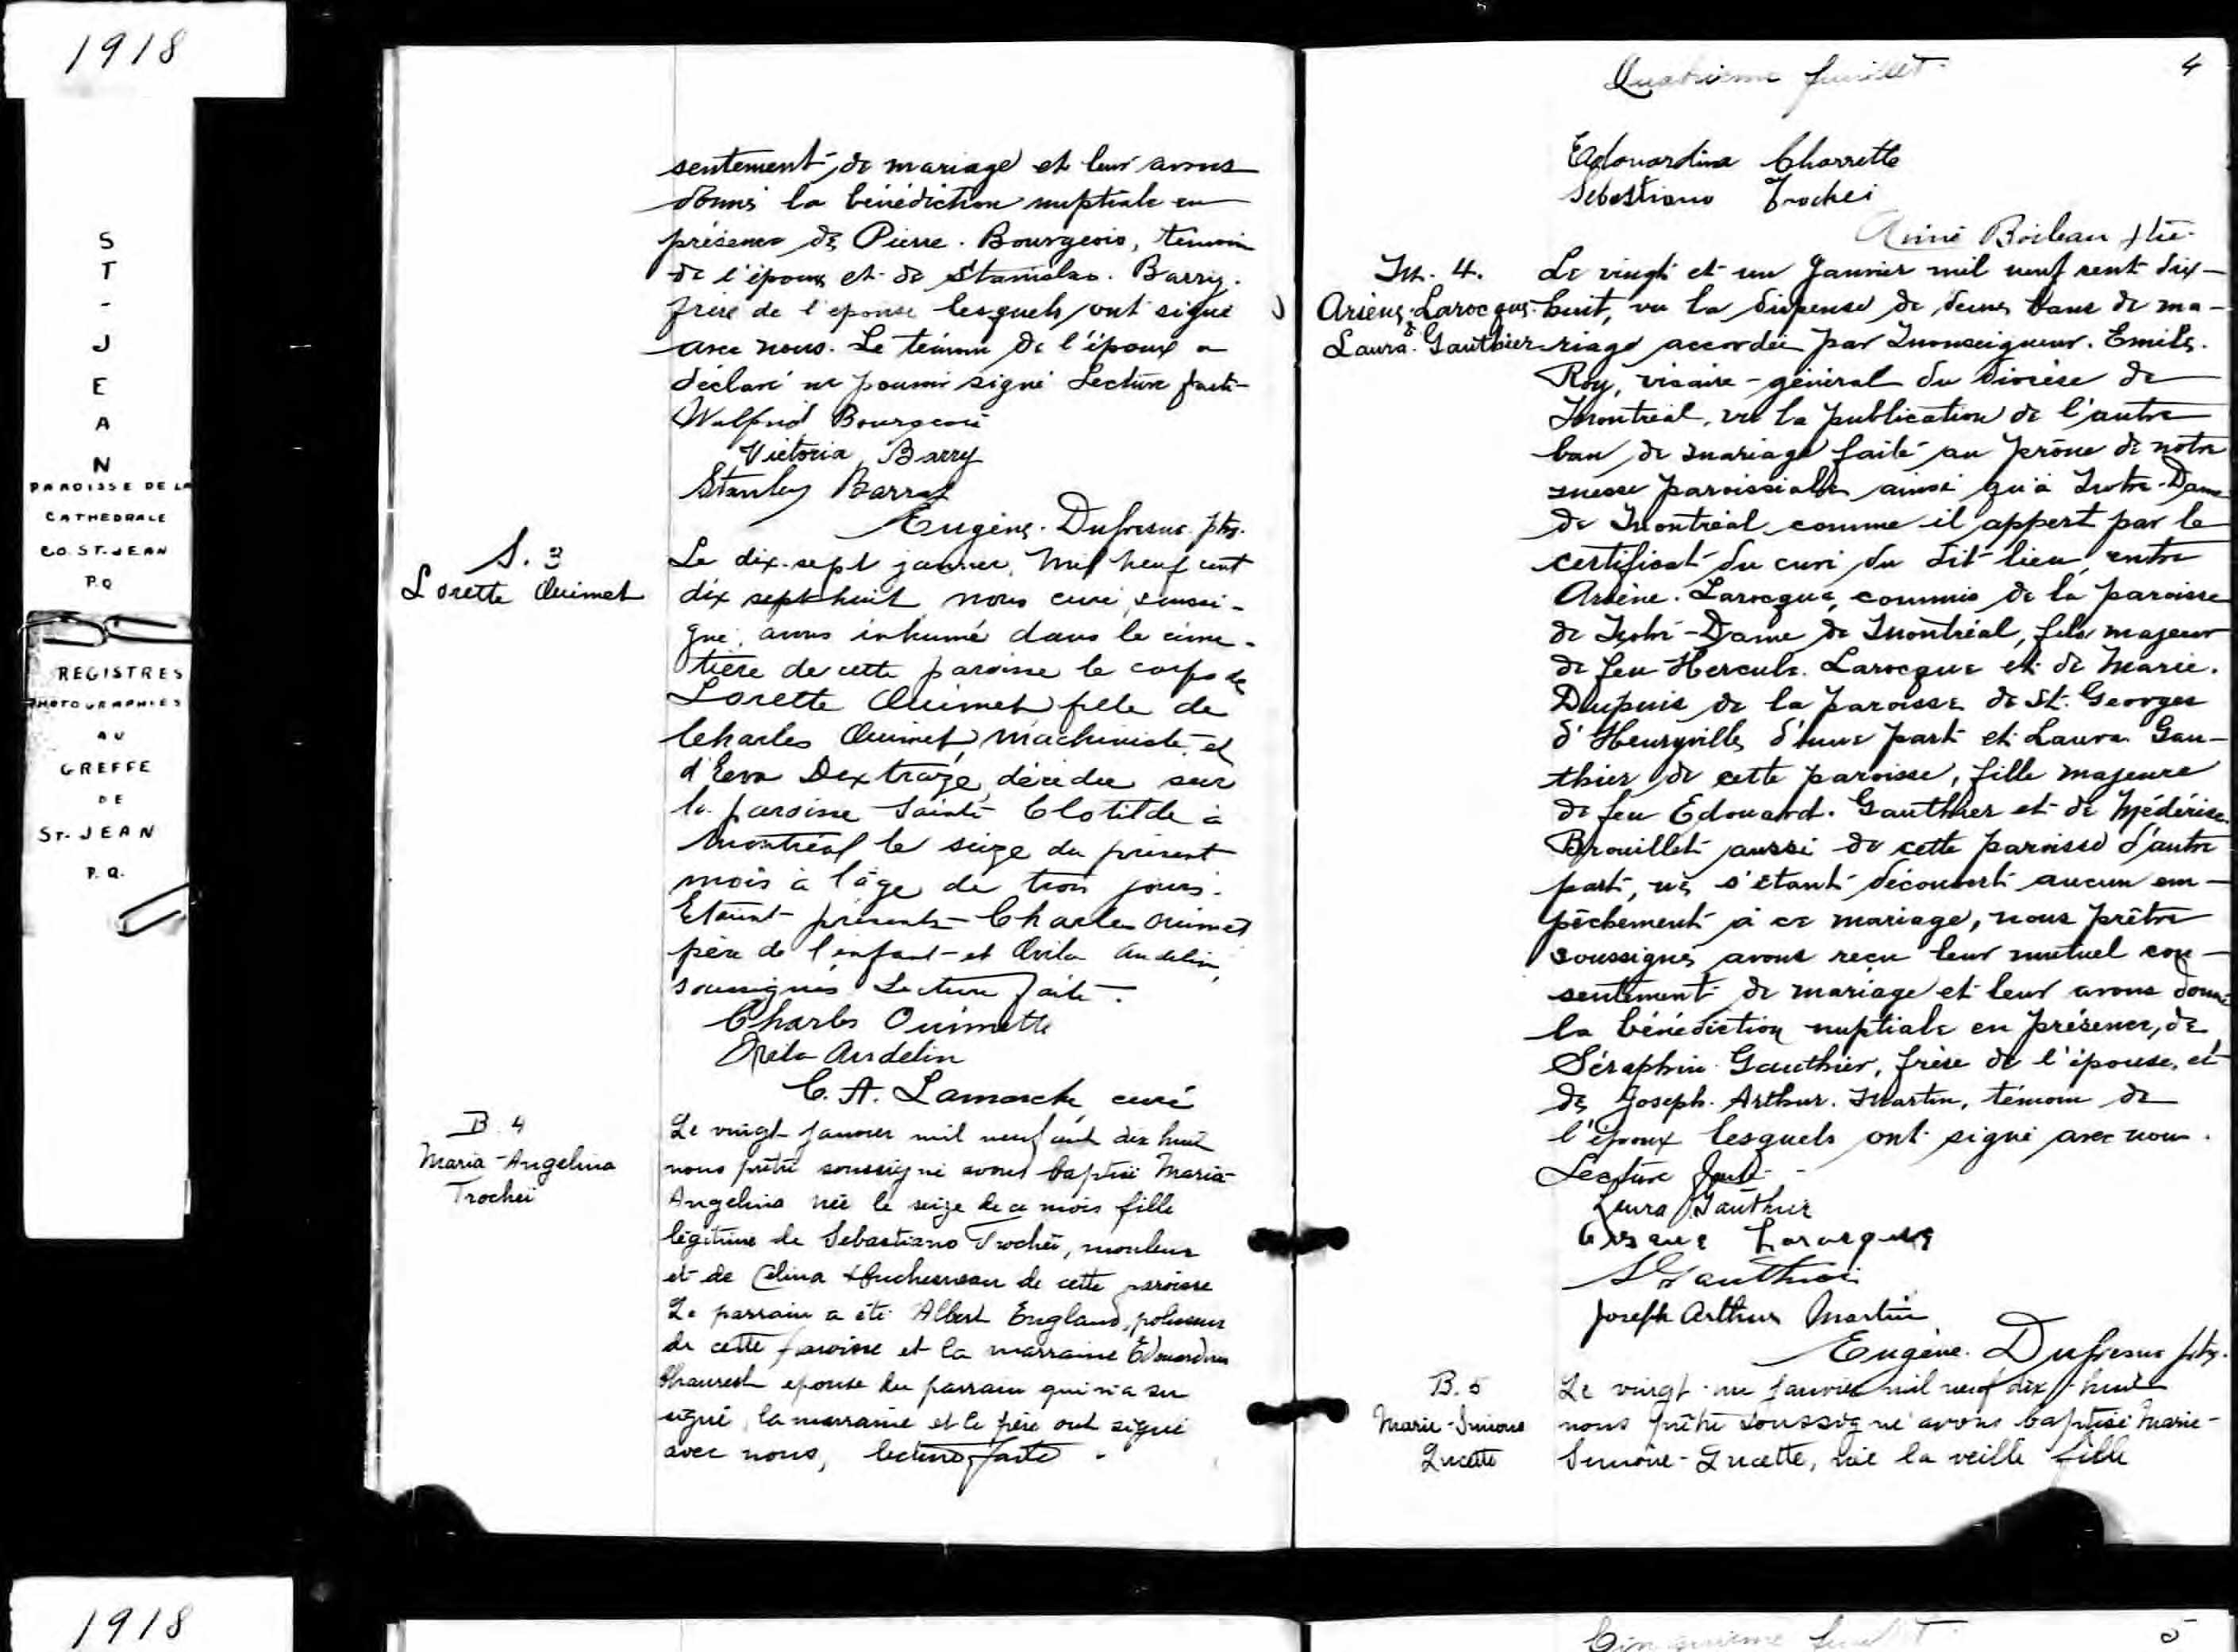 1918
ST-JEAN
PAROISSE DE LA
CATHEDRALE
CO. ST-JEAN
P.Q
REGISTRES
PHOTOGRAPHIES
AU
GREFFE
DE
ST-JEAN
P.Q.
sentement de mariage et leur avons
donné la bénédiction nuptiale en
présence de Pierre. Bourgeois, témoin
de l'époux et de Stanislas. Barry.
frère de l'épouse lesquels ont signé
avec nous. Le témoin de l'époux a
déclaré ne pouvoir signé Lecture faite
Wilfrid Bourgeois
Victoria Barry
Stanley Barry
Eugène. Dufresne. ptre.
S. 3
Lorette Ouimet
Le dix-sept janvier, mil neuf cent
dix sept huit nous curé, soussi-
gné, avons inhumé dans le cime-
tière de cette paroisse le corps de
Lorette Ouimet fille de
Charles Ouimet, machiniste et
d'Eeva Dextraze, décédée sur
la paroisse Sainte Clotilde à
Montréal le seize du présent
mois à l'âge de trois jours.
Etaient présents Charles Ouimet
père de l'enfant et Ovila Audelin,
soussignés Lecture faite.
Charles Ouimette
Ovila Audelin
C. A. Lamarche, curé
B. 4
Maria-Angelina
Trochei
Le vingt Janvier mil neuf cent dix huit
nous prêtre soussigné avons baptisé Maria-
Angelina née le seize de ce mois fille
légitime de Sebastiano Trochei, mouleur
et de Celina Duchesneau de cette paroisse
Le parrain a été Albert England, polisseur
de cette paroisse et la marraine Edouardina
épouse du parrain qui n'a su
signé, la marraine et le père ont signé
avec nous, lecture faite.
Quatrième feuillet
4
Edouardina Charrette
Sebastiano Trochei
Aimé Boileau ptre
M. 4.
Arsène Larocque
&
Laura. Gauthier
Le vingt et un Janvier mil neuf cent dix-
huit, vu la dispense de deux bans de ma-
riage accordée par Monseigneur. Emile.
Roy, vicaire-général du diocèse de
Montréal, vu la publication de l'autre
ban de mariage faite au prône de notre
messe paroissiale ainsi qu'à Notre-Dame
de Montréal comme il appert par le
certificat du curé du dit lieu, entre
Arsène. Larocque, commis de la paroisse
de Notre-Dame de Montréal, fils majeur
de feu Hercule. Larocque et de Marie.
Dupuis de la paroisse de St. Georges
d'Henryville, d'une part et Laura Gau-
thier de cette paroisse, fille majeure
de feu Edouard. Gauthier et de Médérise
Brouillet aussi de cette paroisse d'autre
part, ne s'étant découvert aucun em-
pêchement à ce mariage, nous prêtre
soussignés avons reçu leur mutuel con-
sentement de mariage et leur avons donné
la bénédiction nuptiale en présence, de
Séraphin Gauthier, frère de l'épouse, et
de Joseph. Arthur. Martin, témoin de
l'époux lesquels ont signé avec nous.
Lecture faite
Laura Gauthier
Arsene Larocque
S Gauthier
Joseph Arthur Martin
Eugène. Dufresne ptre.
B. 5
Marie-Simone
Lucette
Le vingt-un Janvier mil neuf dix-huit
nous prêtre soussigné avons baptisé Marie-
Simone-Lucette, née la veille fille
1918
Cinquième feuillet
5